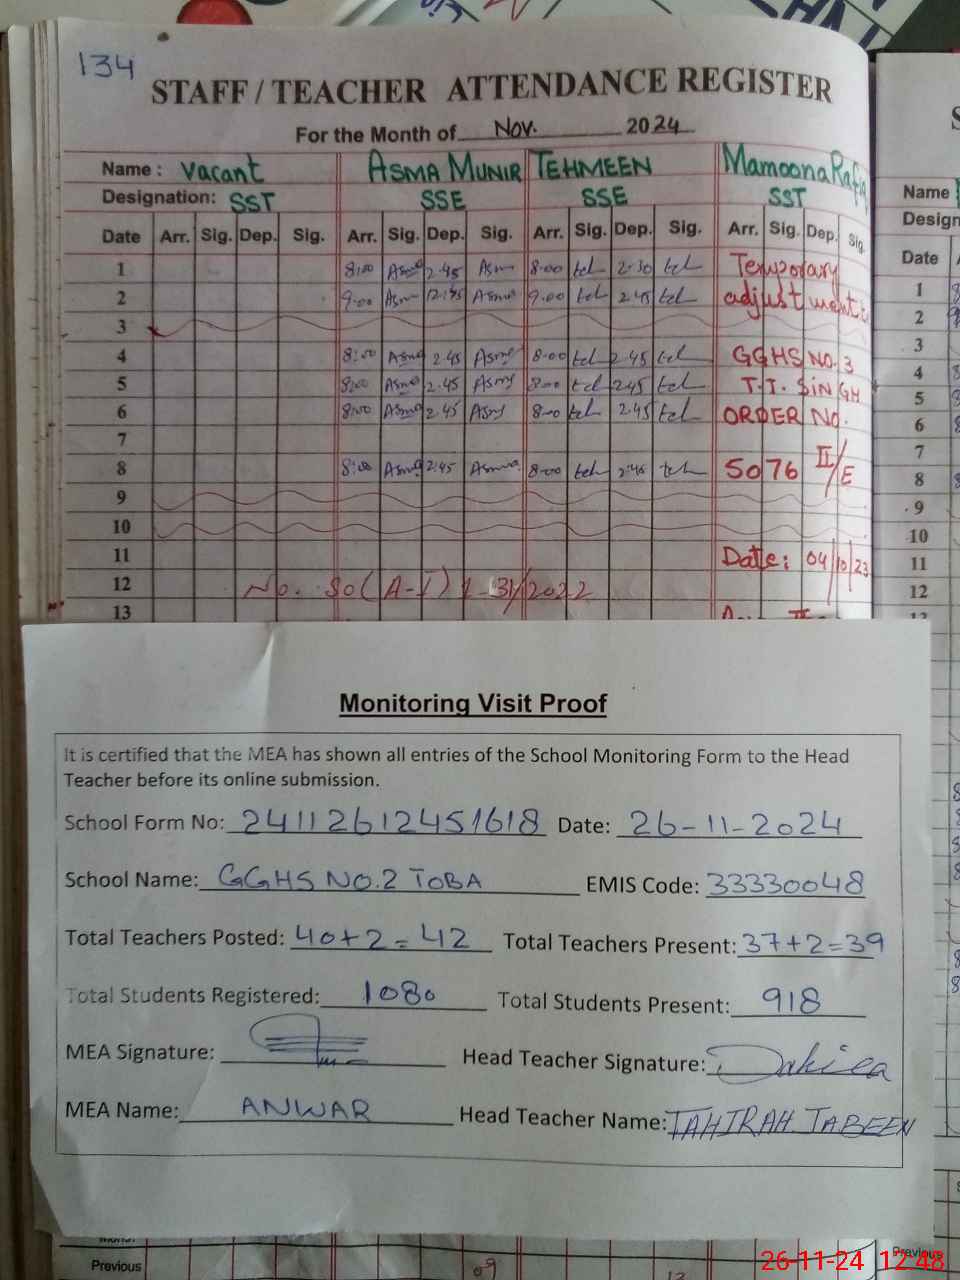 134
STAFF / TEACHER ATTENDANCE REGISTER
For the Month of Nov. 2024
Name : Vacant ASMA MUNIR TEHMEEN Mamoona Rafiq
Designation: SST SSE SSE SST
Date Arr. Sig. Dep. Sig. Arr. Sig. Dep. Sig. Arr. Sig. Dep. Sig. Arr. Sig. Dep. Sig.
1 8:00 Asma 2.45 Asm 8-00 teh 2-30 teh Temporary
2 9.00 Asm 12:45 Asma 9.00 teh 2.45 teh adjustment
3
4 8:00 Asma 2.45 Asma 8-00 teh 2.45 teh GGHS NO. 3
5 8:00 Asma 2.45 Asma 8-00 teh 2.45 teh T.T. SINGH
6 8:00 Asma 2.45 Asm 8-00 teh 2.45 teh ORDER NO.
7
8 8:00 Asma 2:45 Asma 8-00 teh 2:45 teh 5076 II/E
9
10
11 Date: 04/10/23
12 No. SO(A-I) 1-31/2022
13
Name
Design
Date
1
2
3
4
5
6
7
8
9
10
11
12
Monitoring Visit Proof
It is certified that the MEA has shown all entries of the School Monitoring Form to the Head
Teacher before its online submission.
School Form No: 24112612451618 Date: 26-11-2024
School Name: GGHS NO.2 TOBA EMIS Code: 33330048
Total Teachers Posted: 40+2=42 Total Teachers Present: 37+2=39
Total Students Registered: 1080 Total Students Present: 918
MEA Signature: Head Teacher Signature:
MEA Name: ANWAR Head Teacher Name: TAHIRAH JABEEN
Previous 09 Previous
26-11-24 12:48